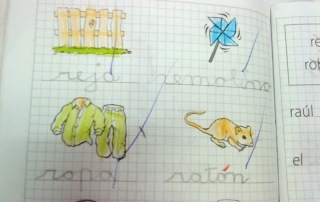 reja remolino
ropa ratón
raúl
el